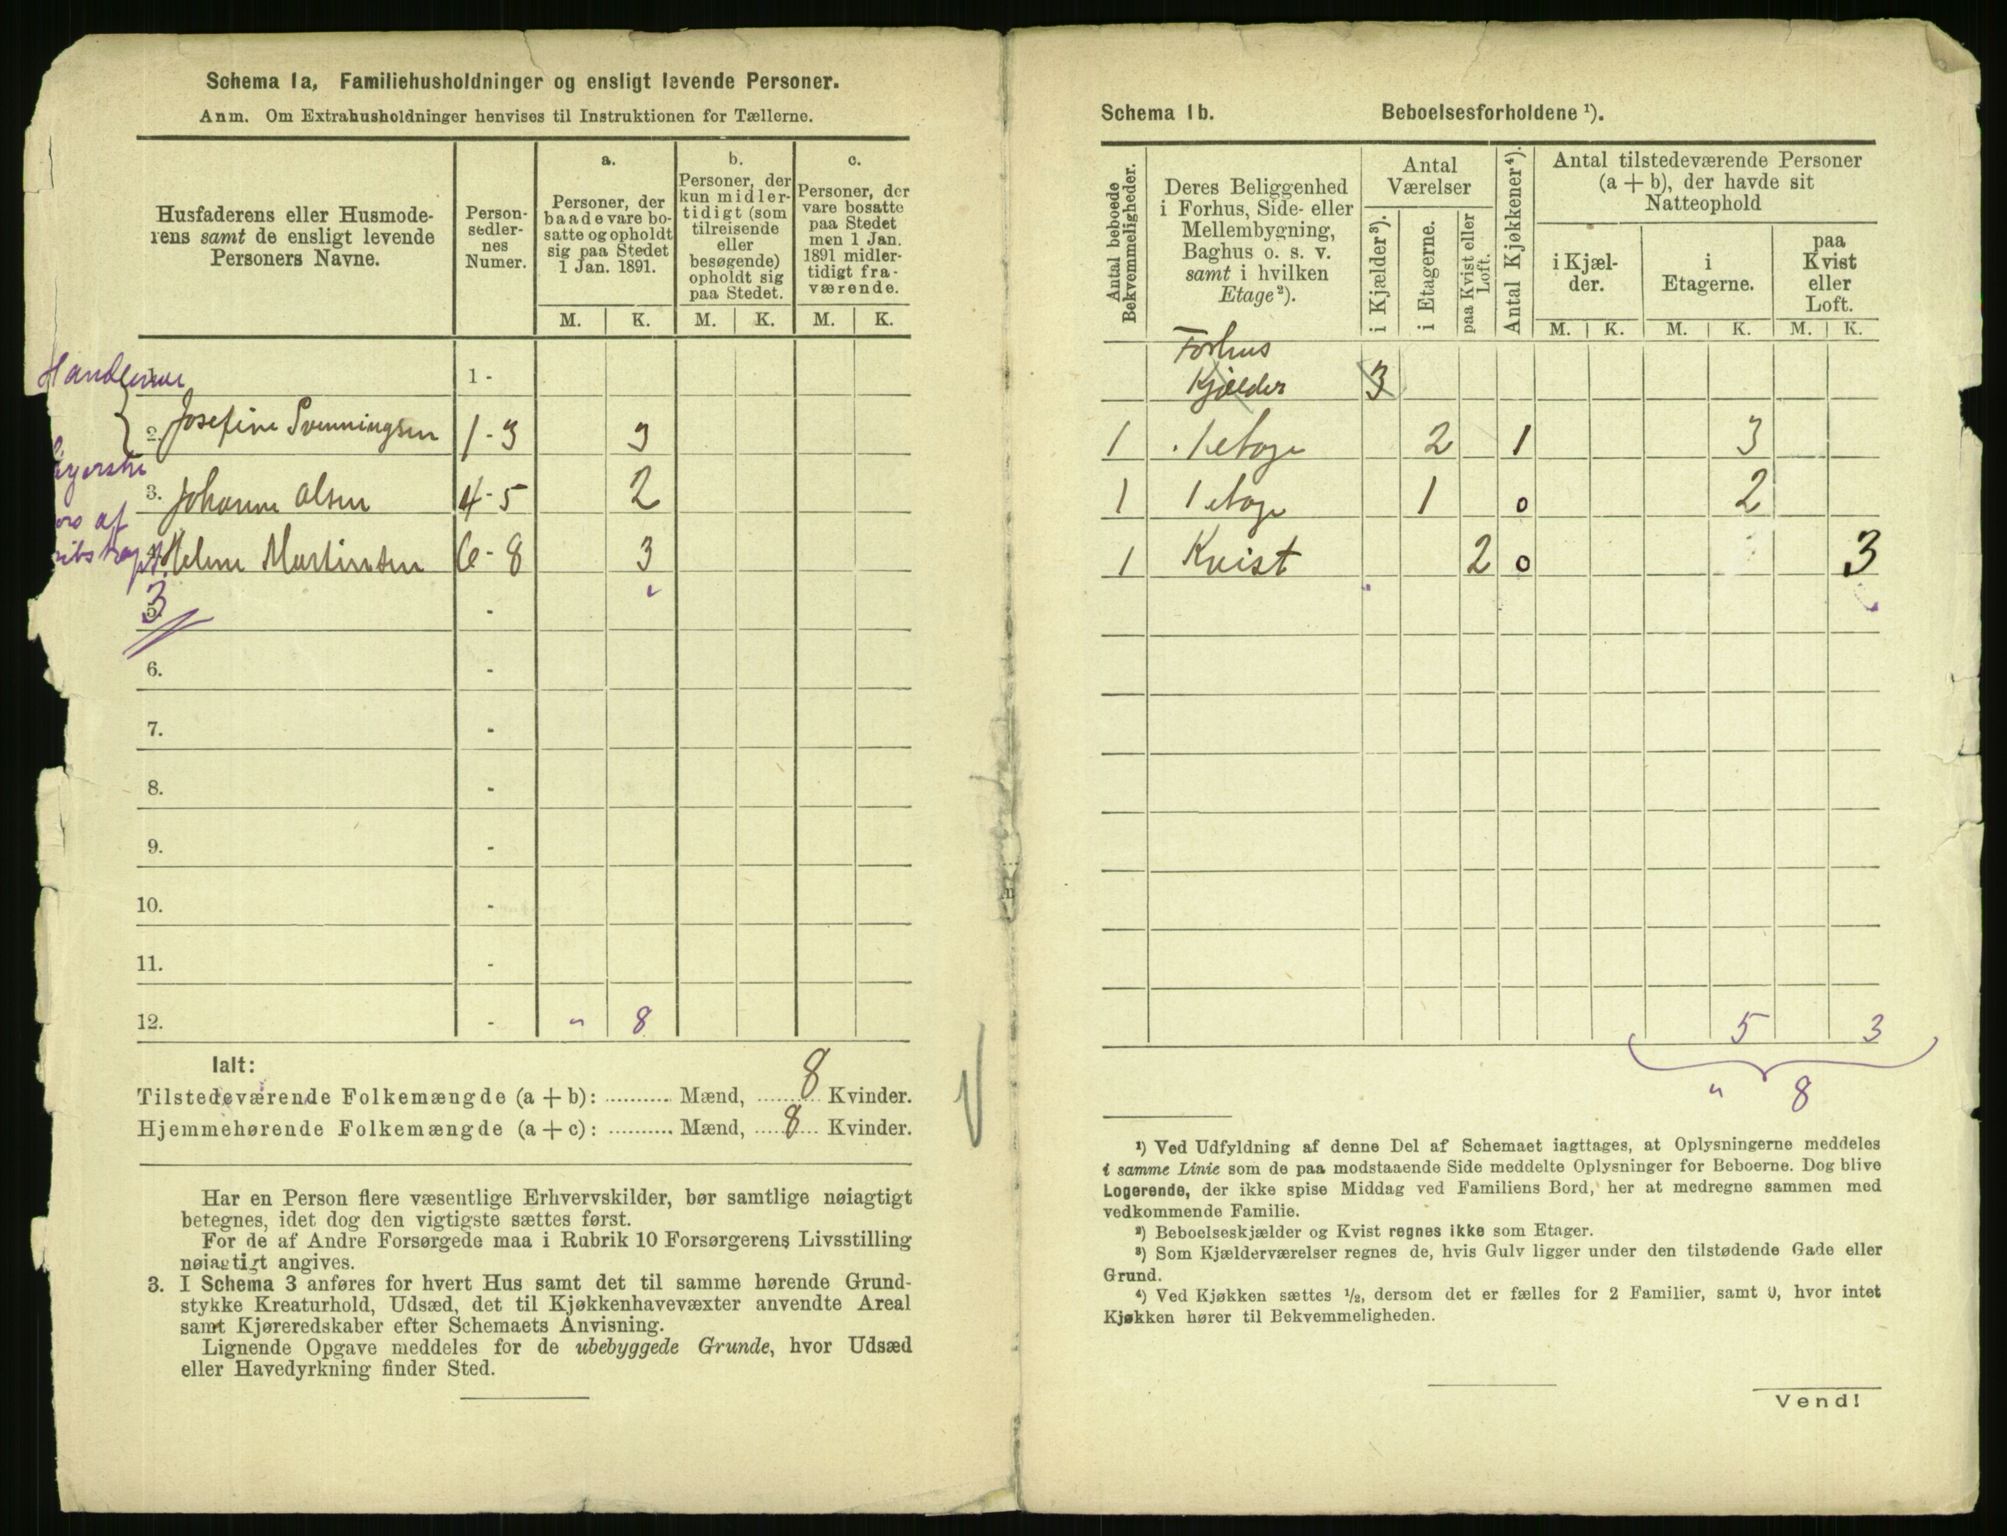 Schema 1a, Familiehusholdninger og ensligt levende Personer.
Anm. Om Extrahusholdninger henvises til Instruktionen for Tællerne.
Husfaderens eller Husmode-
rens samt de ensligt levende
Personers Navne.
Person-
sedler-
nes
Numer.
a.
Personer, der
baade vare bo-
satte og opholdt
sig paa Stedet
1 Jan. 1891.
b.
Personer, der
kun midler-
tidigt (som
tilreisende
eller
besøgende)
opholdt sig
paa Stedet.
c.
Personer, der
vare bosatte
paa Stedet
men 1 Jan.
1891 midler-
tidigt fra-
værende.
M. K. M. K. M. K.
1 -
2. Josefine Svenningsen 1 - 3 3
3. Johanne Olsen 4 - 5 2
4. Helene Martinsen 6 - 8 3
3
5. -
6. -
7. -
8. -
9. -
10. -
11. -
12. - " 8
Ialt:
Tilstedeværende Folkemængde (a + b): ........... Mænd, 8 Kvinder.
Hjemmehørende Folkemængde (a + c): ........... Mænd, 8 Kvinder.
Har en Person flere væsentlige Erhvervskilder, bør samtlige nøiagtigt
betegnes, idet dog den vigtigste sættes først.
For de af Andre Forsørgede maa i Rubrik 10 Forsørgerens Livsstilling
nøiagtigt angives.
3. I Schema 3 anføres for hvert Hus samt det til samme hørende Grund-
stykke Kreaturhold, Udsæd, det til Kjøkkenhavevæxter anvendte Areal
samt Kjøreredskaber efter Schemaets Anvisning.
Lignende Opgave meddeles for de ubebyggede Grunde, hvor Udsæd
eller Havedyrkning finder Sted.
Schema 1b. Beboelsesforholdene ¹).
Antal beboede
Bekvemmeligheder.
Deres Beliggenhed
i Forhus, Side- eller
Mellembygning,
Baghus o. s. v.
samt i hvilken
Etage²).
Antal
Værelser
i Kjælder³).
i Etagerne.
paa Kvist eller
Loft.
Antal Kjøkkener⁴).
Antal tilstedeværende Personer
(a + b), der havde sit
Natteophold
i Kjæl-
der.
i
Etagerne.
paa
Kvist
eller
Loft.
M. K. M. K. M. K.
Forhus
Kjælder 3
1 1 etage 2 1 3
1 1 etage 1 0 2
1 Kvist 2 0 3
5 3
" 8
¹) Ved Udfyldning af denne Del af Schemaet iagttages, at Oplysningerne meddeles
i samme Linie som de paa modstaaende Side meddelte Oplysninger for Beboerne. Dog blive
Logerende, der ikke spise Middag ved Familiens Bord, her at medregne sammen med
vedkommende Familie.
²) Beboelseskjælder og Kvist regnes ikke som Etager.
³) Som Kjælderværelser regnes de, hvis Gulv ligger under den tilstødende Gade eller
Grund.
⁴) Ved Kjøkken sættes ½, dersom det er fælles for 2 Familier, samt 0, hvor intet
Kjøkken hører til Bekvemmeligheden.
Vend!